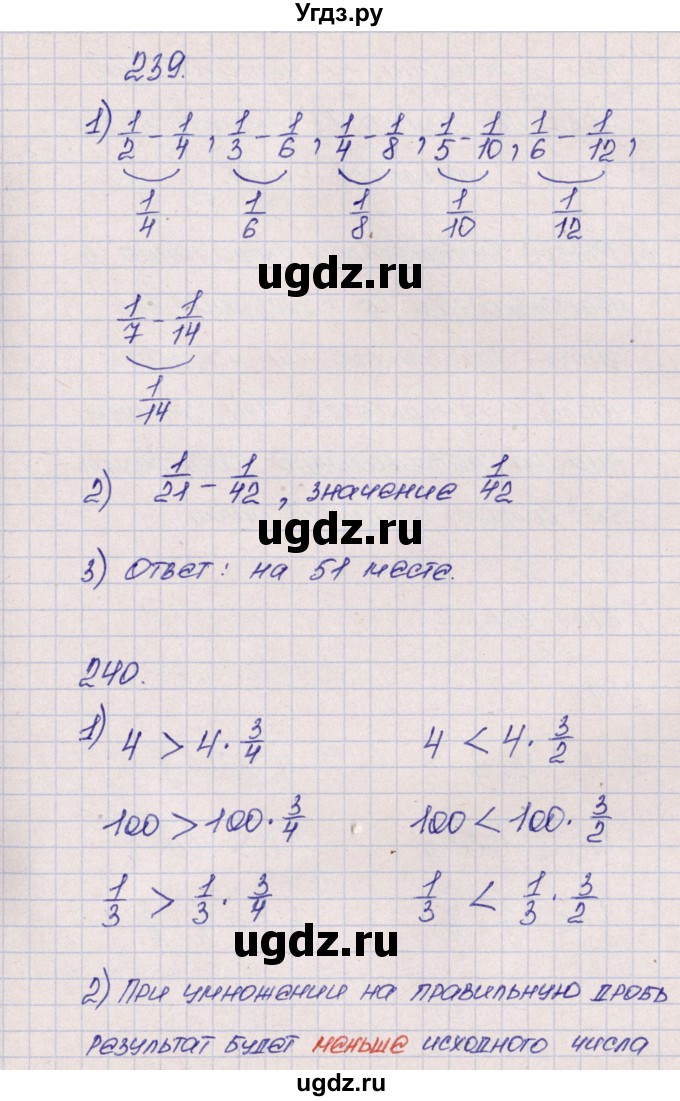 Угдз.ру
239.
1) 1/2 - 1/4, 1/3 - 1/6, 1/4 - 1/8, 1/5 - 1/10, 1/6 - 1/12,
1/4 1/6 1/8 1/10 1/12
ugdz.ru
1/7 - 1/14
1/14
2) 1/21 - 1/42, значение 1/42
ugdz.ru
3) Ответ: на 51 месте.
240.
1) 4 > 4 · 3/4 4 < 4 · 3/2
100 > 100 · 3/4 100 < 100 · 3/2
1/3 > 1/3 · 3/4 1/3 < 1/3 · 3/2
ugdz.ru
2) При умножении на правильную дробь
результат будет меньше исходного числа
ugdz.ru